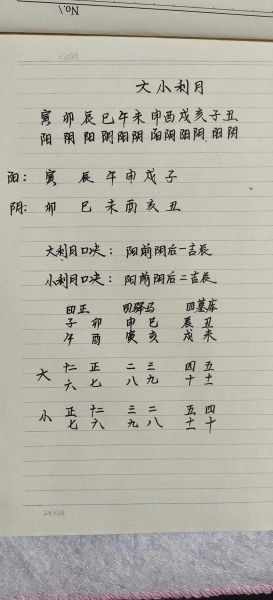 No.1
大小利月
寅卯辰巳午未申酉戌亥子丑
阳阴阳阴阳阴阳阴阳阴阳阴
阳：寅 辰午申戌子
阴：卯 巳未酉亥丑
大利月口决：阳前阴后一吉辰
小利月口决：阳前阴后二吉辰
四正 四驿马 四墓库
子卯 申巳 辰丑
午酉 寅亥 戌未
大 十二 正 二三 四五
六七 八九 十 十一
小 正 十二 三二 五四
七六 九八 十一 十